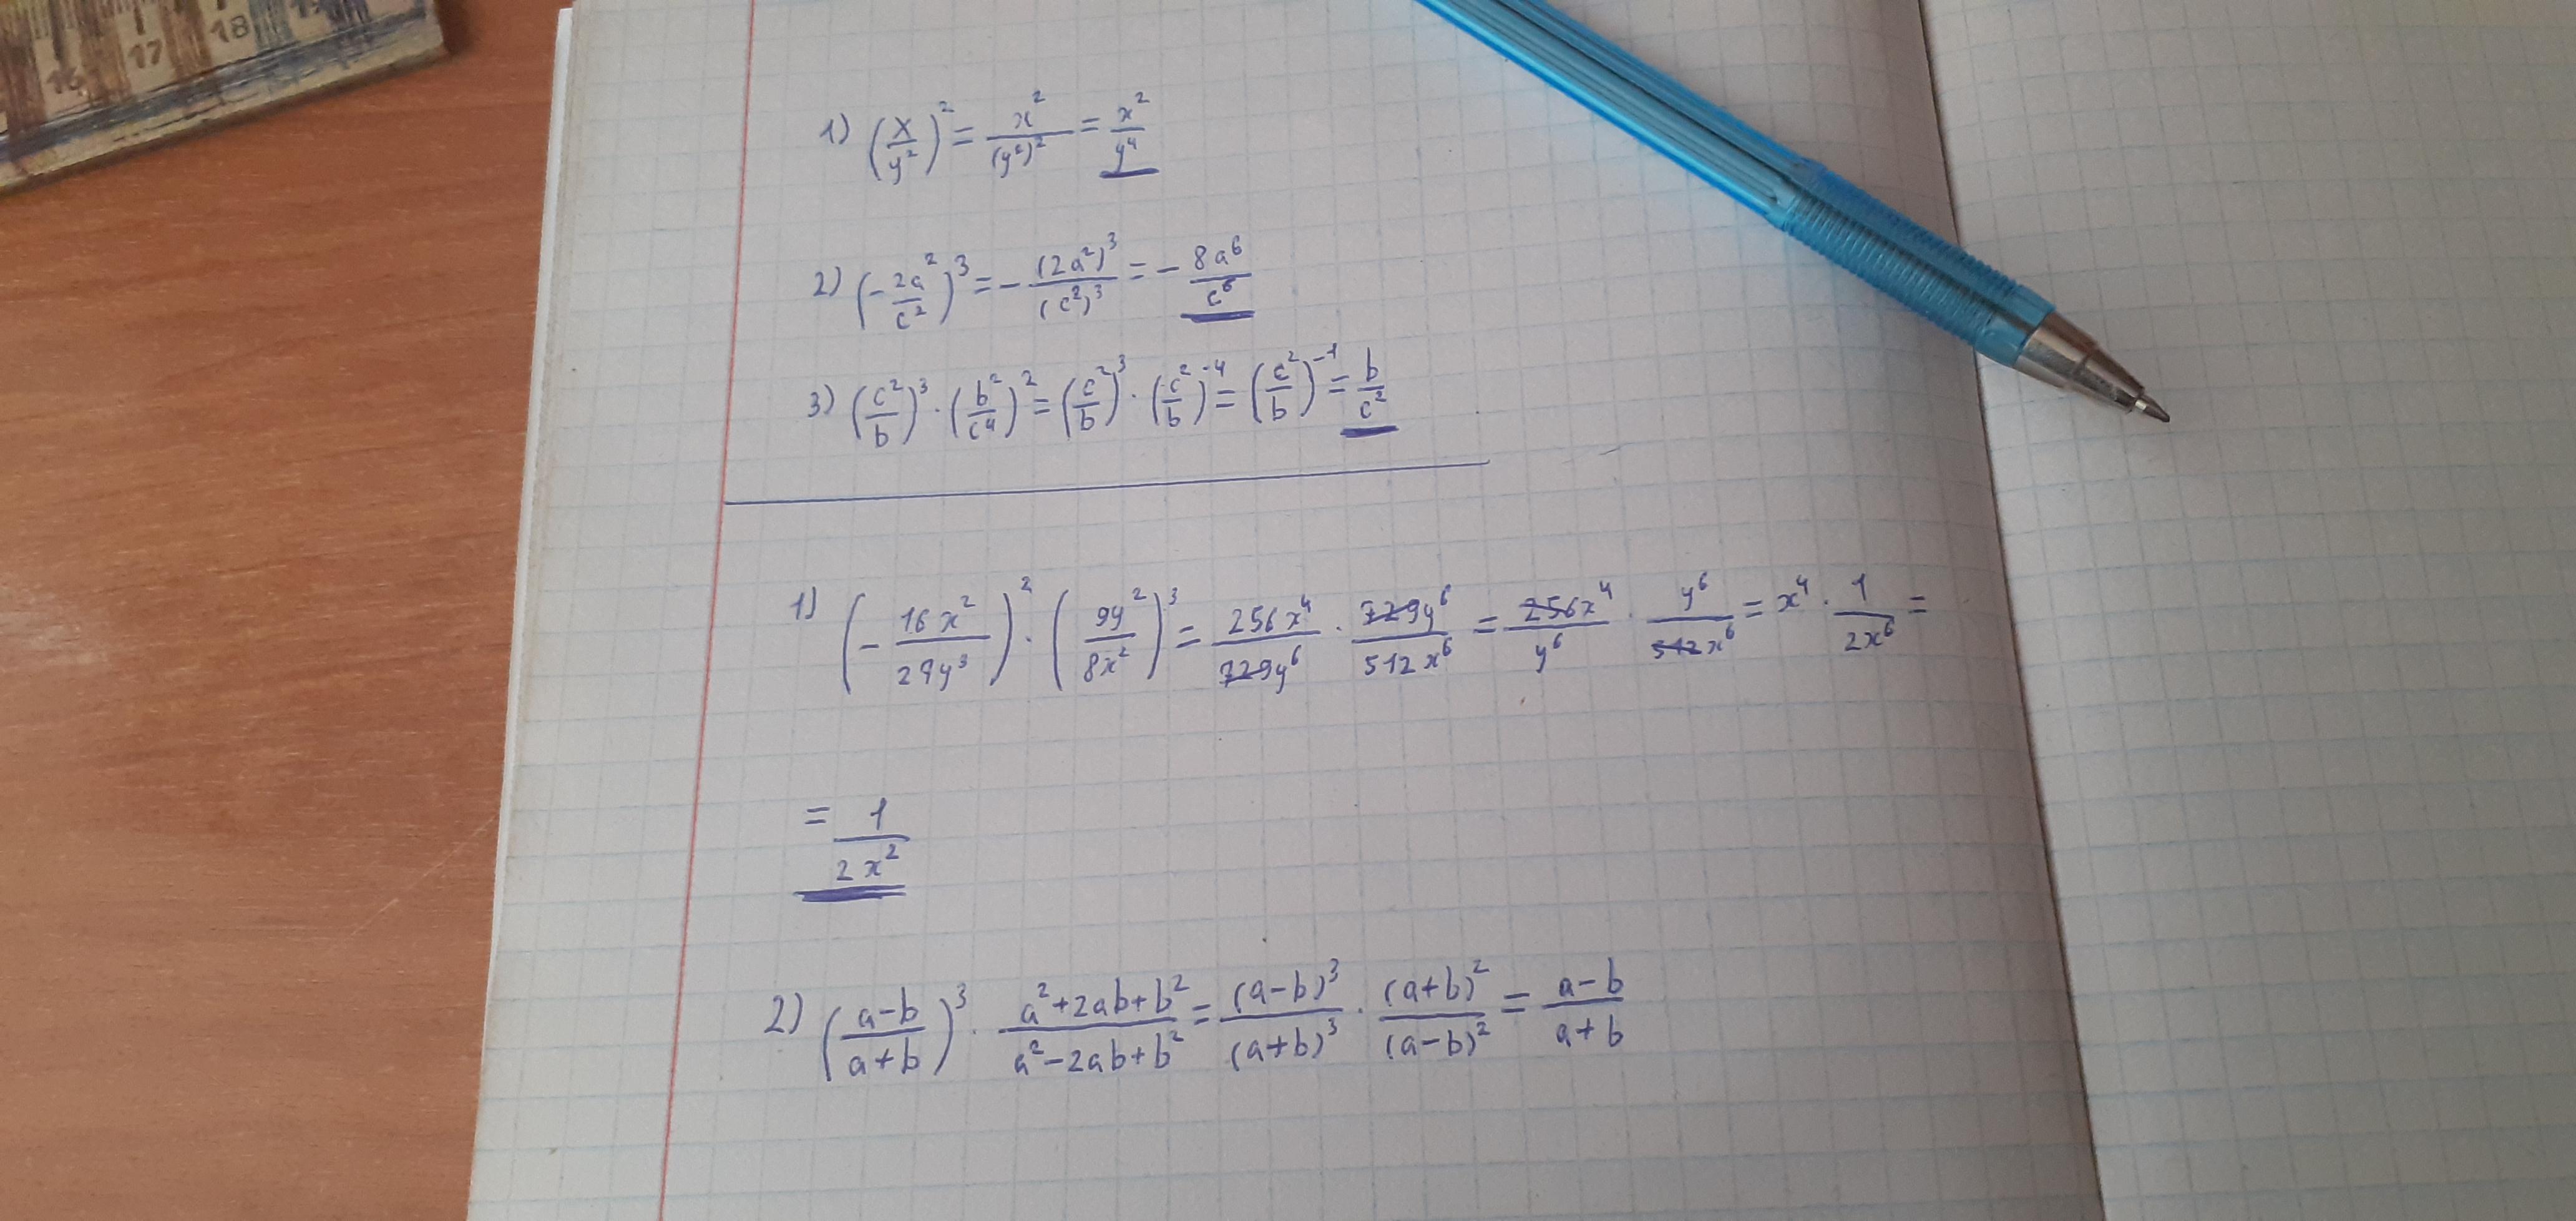 16 17 18 19
1) (x/y²)² = x²/(y²)² = x²/y⁴
2) (-2a²/c²)³ = -(2a²)³/(c²)³ = -8a⁶/c⁶
3) (c²/b)³ · (b²/c⁴)² = (c²/b)³ · (c²/b)⁻⁴ = (c²/b)⁻¹ = b/c²
1) (-16x²/27y³)² · (9y²/8x²)³ = 256x⁴/729y⁶ · 729y⁶/512x⁶ = 256x⁴/y⁶ · y⁶/512x⁶ = x⁴ · 1/2x⁶ =
= 1/2x²
2) (a-b/a+b)³ · a²+2ab+b²/a²-2ab+b² = (a-b)³/(a+b)³ · (a+b)²/(a-b)² = a-b/a+b